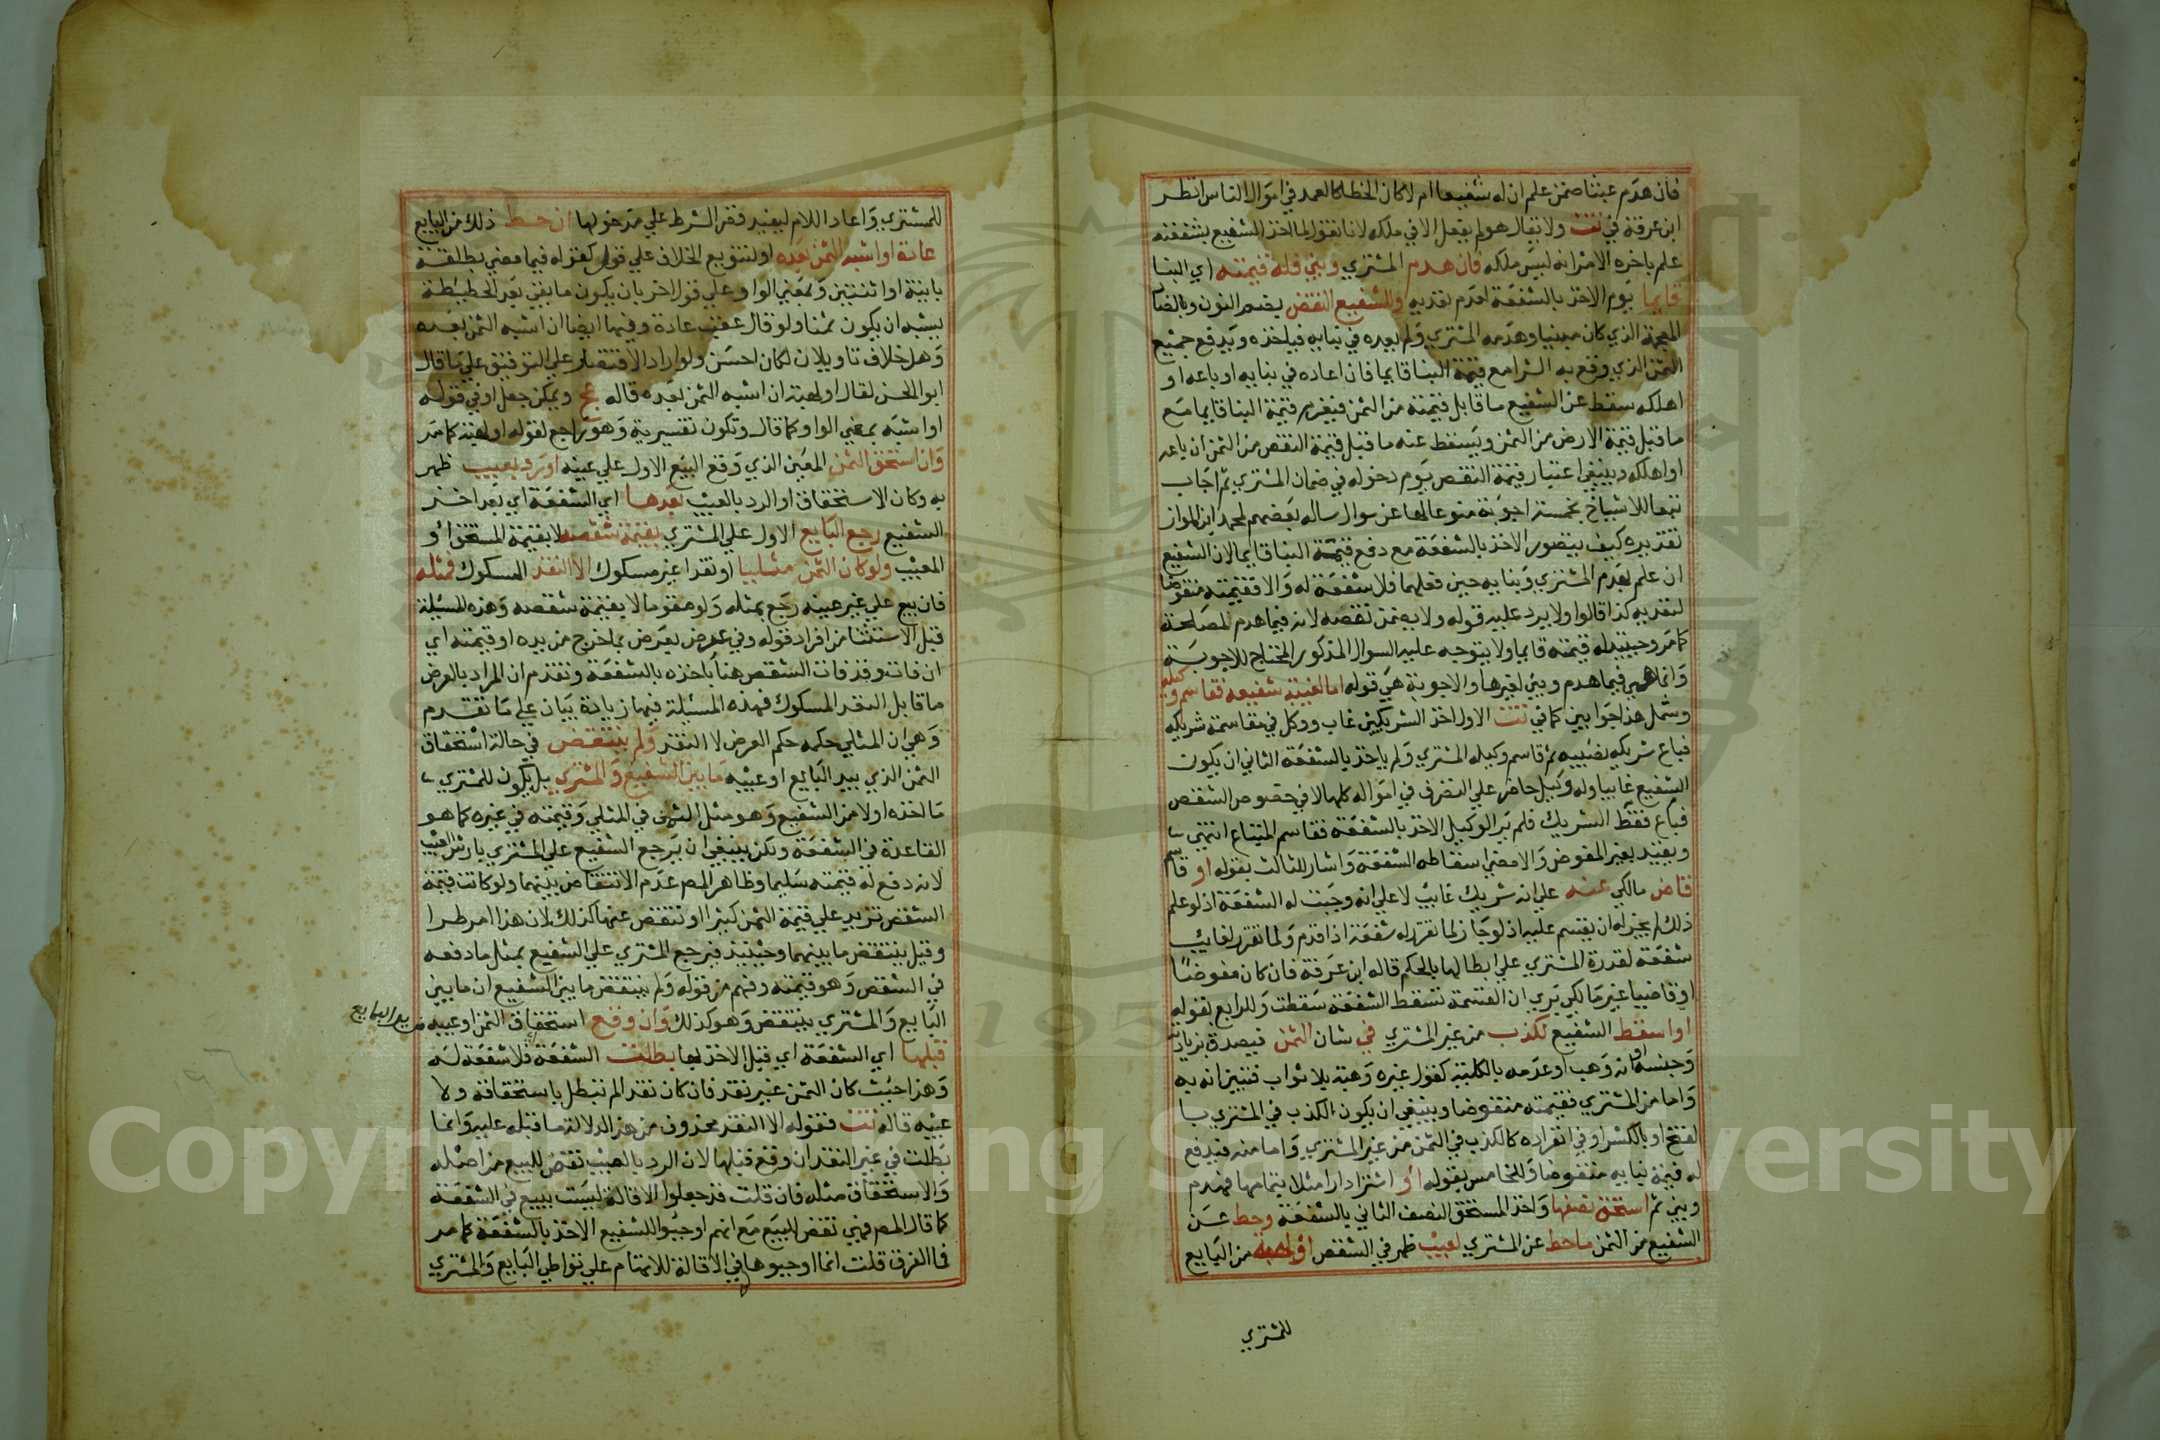 فان هدم عبثا ضمن علم ان له شفيعا ام لا كان الخطا كالعمد في اموال الناس انظر
ابن عرفة في تت ولا يقال هو لم يفعل الا في ملكه لانا نقول لما اخذ الشفيع بشفعته
علم باخره الامر انه ليس ملكه فان هدم المشتري وبني فله قيمته اي البنا
قايما يوم الاخذ بالشفعة لعدم تعديه وللشفيع النقض بضم النون وبالضاد
المعجمة الذي كان مبنيا وهدمه المشتري ولم يعده في بنايه فياخذه ويدفع جميع
الثمن الذي وقع به الشرا مع قيمة البنا قايما فان اعاده في بنايه او باعه او
اهلكه سقط عن الشفيع ما قابل قيمته من الثمن فيغرم قيمة البنا قايما مع
ما قبل قيمة الارض من الثمن ويسقط عنه ما قبل قيمة النقض من الثمن ان باعه
او اهلكه وينبغي اعتبار قيمة النقض يوم دخوله في ضمان المشتري ثم اجاب
تبعا للاشياخ بخمسة اجوبة متوعا لها عن سوال ساله بعضهم لمحمد ابن المواز
تقديره كيف يتصور الاخذ بالشفعة مع دفع قيمة البنا قايما لان الشفيع
ان علم بهدم المشتري وبنايه حين فعلهما فلا شفعة له والا فقيمته منقوضا
لتعديه كذا قالوا ولا يرد عليه قوله ولا يضمن نقصه لانه فيما هدم لمصلحة
كما مر وحينئذ له قيمته قايما ولا يتوجه عليه السوال المذكور المحتاج للاجوبة
وانما هي فيما هدم وبني لغيرها والاجوبة هي قوله اما لغيبة شفيعه فقاسم وكيله
وشمل هذا جوابين كما في تت الاول احد الشريكين غاب ووكل في مقاسمة شريكه
فباع شريكه نصيبه ثم قاسم وكيله المشتري ولم ياخذ بالشفعة الثاني ان يكون
الشفيع غايبا وله وكيل حاضر علي التصرف في امواله كلها لا في خصوص الشقص
فباع فقط الشريك فلم ير الوكيل الاخذ بالشفعة فقاسم المبتاع انتهي
ويقيد بغير المفوض والا مضي اسقاطه الشفعة واشار للثالث بقوله او قاسم
قاض مالكي عنه علي انه شريك غايب لا علي انه وجبت له الشفعة اذ لو علم
ذلك لم يجز له ان يقسم عليه اذ لو جاز لما تقرر له شفعة اذا قدم ولما تقرر لغايب
شفعة لقدرة المشتري علي ابطالها بالحكم قاله ابن عرفة فان كان مفوضا
او قاضيا غير مالكي يري ان القسمة تسقط الشفعة سقطت وللرابع بقوله
او اسقط الشفيع لكذب من غير المشتري في شان الثمن فيصدق بزيادته
وجنسه او انه وهب او عدمه بالكلية كقول غيره وهبته بلا ثواب فتبين انه به
واما من المشتري فقيمته منقوضا وينبغي ان يكون الكذب في المشتري با
لفتح او بالكسر او في انفراده كالكذب في الثمن من غير المشتري واما منه فيدفع
له قيمة بنايه منقوضا وللخامس بقوله او اشتري دارا مثلا بتمامها فهدم
وبني ثم استحق نصفها واخذ المستحق النصف الثاني بالشفعة وحط عن
الشفيع من الثمن ما حط عن المشتري لعيب ظهر في الشقص او لهبة من البايع
للمشتري
للمشتري واعاد اللام ليفيد قصر الشرط علي مدخولها ان حط ذلك من البايع
عادة او اشبه الثمن بعده او لتنويع الخلاف علي قول كقوله فيما مضي بطلقة
باينة او اثنتين وبمعني الواو وعلي قول اخر بان يكون ما بقي بعد الحطيطة
يشبه ان يكون ثمنا ولو قال عقب عادة وفيها ايضا ان اشبه الثمن بعده
وهل خلاف تاويلان لكان احسن ولو اراد الاقتصار علي التوفيق علي ما قال
ابو الحسن لقال او لهبة ان اشبه الثمن بعده قاله عج ويمكن جعل او في قوله
او اشبه بمعني الواو كما قال وتكون تفسيرية وهو راجع لقوله او لهبة كما مر
وان استحق الثمن المعين الذي وقع البيع الاول علي عينه او رد بعيب ظهر
به وكان الاستحقاق او الرد بالعيب بعدها اي الشفعة اي بعد اخذ
الشفيع رجع البايع الاول علي المشتري بقيمة شقصه لا بقيمة المستحق او
المعيب ولو كان الثمن مثليا او نقدا غير مسكوك الا النقد المسكوك فمثله
فان بيع علي غير عينه رجع بمثله ولو مقوما لا بقيمة شقصه وهذه المسئلة
قبل الاستثنا من افراد قوله وفي عرض بعرض بما خرج من يده او قيمته اي
ان فات وقد فات الشقص هنا باخذه بالشفعة وتقدم ان المراد بالعرض
ما قابل النقد المسكوك فهذه المسئلة فيها زيادة بيان علي ما تقدم
وهي ان المثلي حكمه حكم العرض لا النقد ولم ينتقض في حالة استحقاق
الثمن الذي بيد البايع او عيبه ما بين الشفيع والمشتري بل يكون للمشتري
ما اخذه اولا من الشفيع وهو مثل الثمن في المثلي وقيمته في غيره كما هو
القاعدة في الشفعة ولكن ينبغي ان يرجع الشفيع علي المشتري بارش العيب
لانه دفع له قيمته سليما وظاهر المص عدم الانتقاض بينهما ولو كانت قيمة
الشقص تزيد علي قيمة الثمن كثيرا او تنقص عنها كذلك لان هذا امر طرا
وقيل ينتقض ما بينهما وحينئذ فيرجع المشتري علي الشفيع بمثل ما دفعه
في الشقص وهو قيمته وفهم من قوله ولم ينتقض ما بين الشفيع ان ما بين
البايع والمشتري ينتقض وهو كذلك وان وقع استحقاق الثمن او عيبه من يد البايع
قبلها اي الشفعة اي قبل الاخذ بها بطلت الشفعة فلا شفعة له
وهذا حيث كان الثمن غير نقد فان كان نقدا لم تبطل باستحقاقه ولا
عيبه قاله تت فقوله الا النقد محذوف من هنا لدلالة ما قبله عليه وانما
بطلت في غير النقد ان وقع قبلها لان الرد بالعيب نقض للبيع من اصله
والاستحقاق مثله فان قلت قد جعلوا الاقالة ليست ببيع في الشفعة
كما قال المص فهي نقض للبيع مع انهم اوجبوا للشفيع الاخذ بالشفعة كما مر
فما الفرق قلت انما اوجبوها في الاقالة للاتهام علي تواطي البايع والمشتري
Copyright King Saud University
195